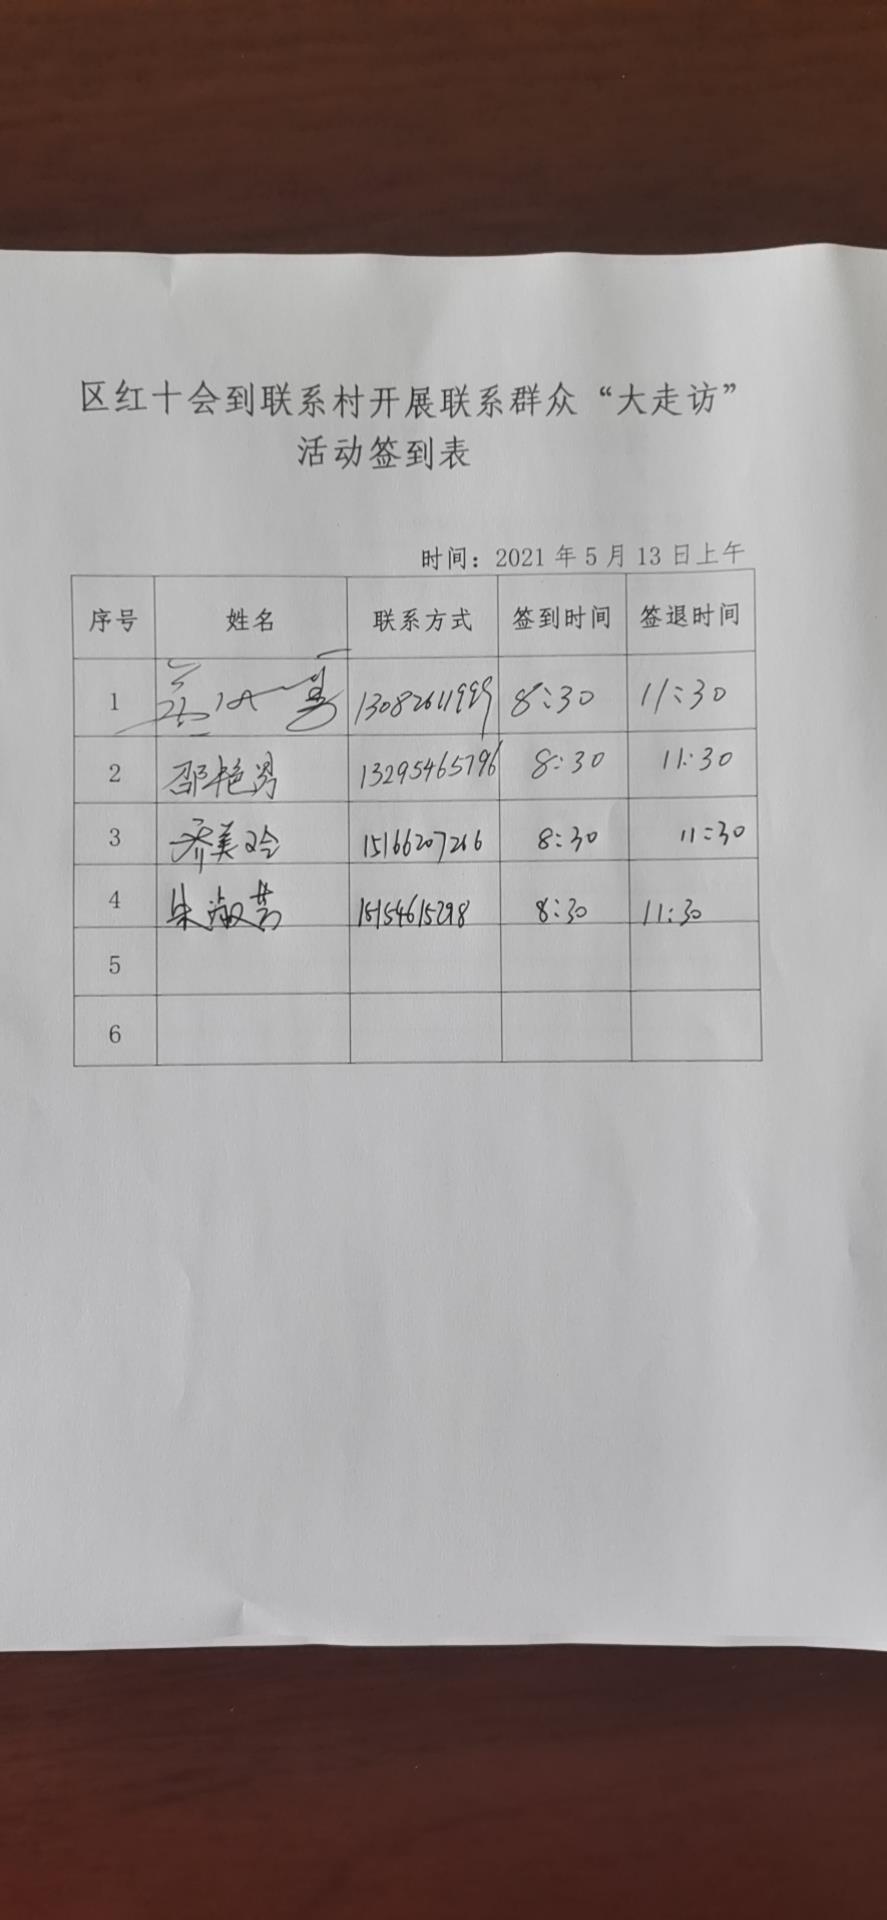 区红十会到联系村开展联系群众“大走访”
活动签到表
时间：2021年5月13日上午
序号 姓名 联系方式 签到时间 签退时间
1 13082611999 8:30 11:30
2 邵艳男 13295465796 8:30 11:30
3 乔美玲 15166207266 8:30 11:30
4 朱淑芳 15154615298 8:30 11:30
5
6